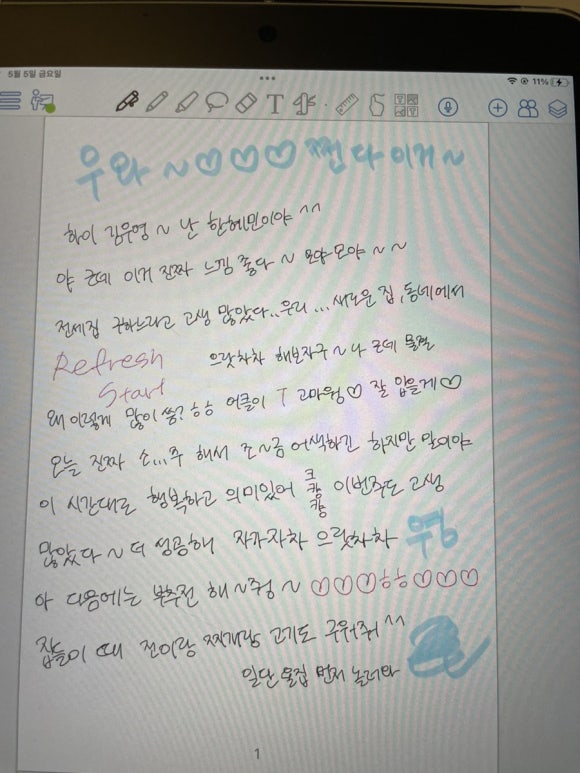 5월 5일 금요일
11%
우와~♡♡♡ 쩐다 이거~
하이 김우영~ 난 한혜민이야 ^^
야 근데 이거 진짜 느낌 좋다~ 모야모야~~
전세집 구하느라고 고생 많았다..우리...새로운 집,동네에서
Refresh Start 으랏차차 해보자구~ 나 근데 물결
왜 이렇게 많이 씀? ㅎㅎ 커플이 T 고마웡♡ 잘 입을게♡
오늘 진짜 소...주 해서 조~금 어색하긴 하지만 말이야
이 시간대로 행복하고 의미있어 크캉캉 이번주도 고생
많았다~ 더 성공해 자가자차 으랏차차 우영
아 다음에는 부추전 해~줭~ ♡♡♡ㅎㅎ♡♡♡
집들이 때 전이랑 찌개랑 고기도 구워줘 ^^
일단 울집 먼저 놀러와
1